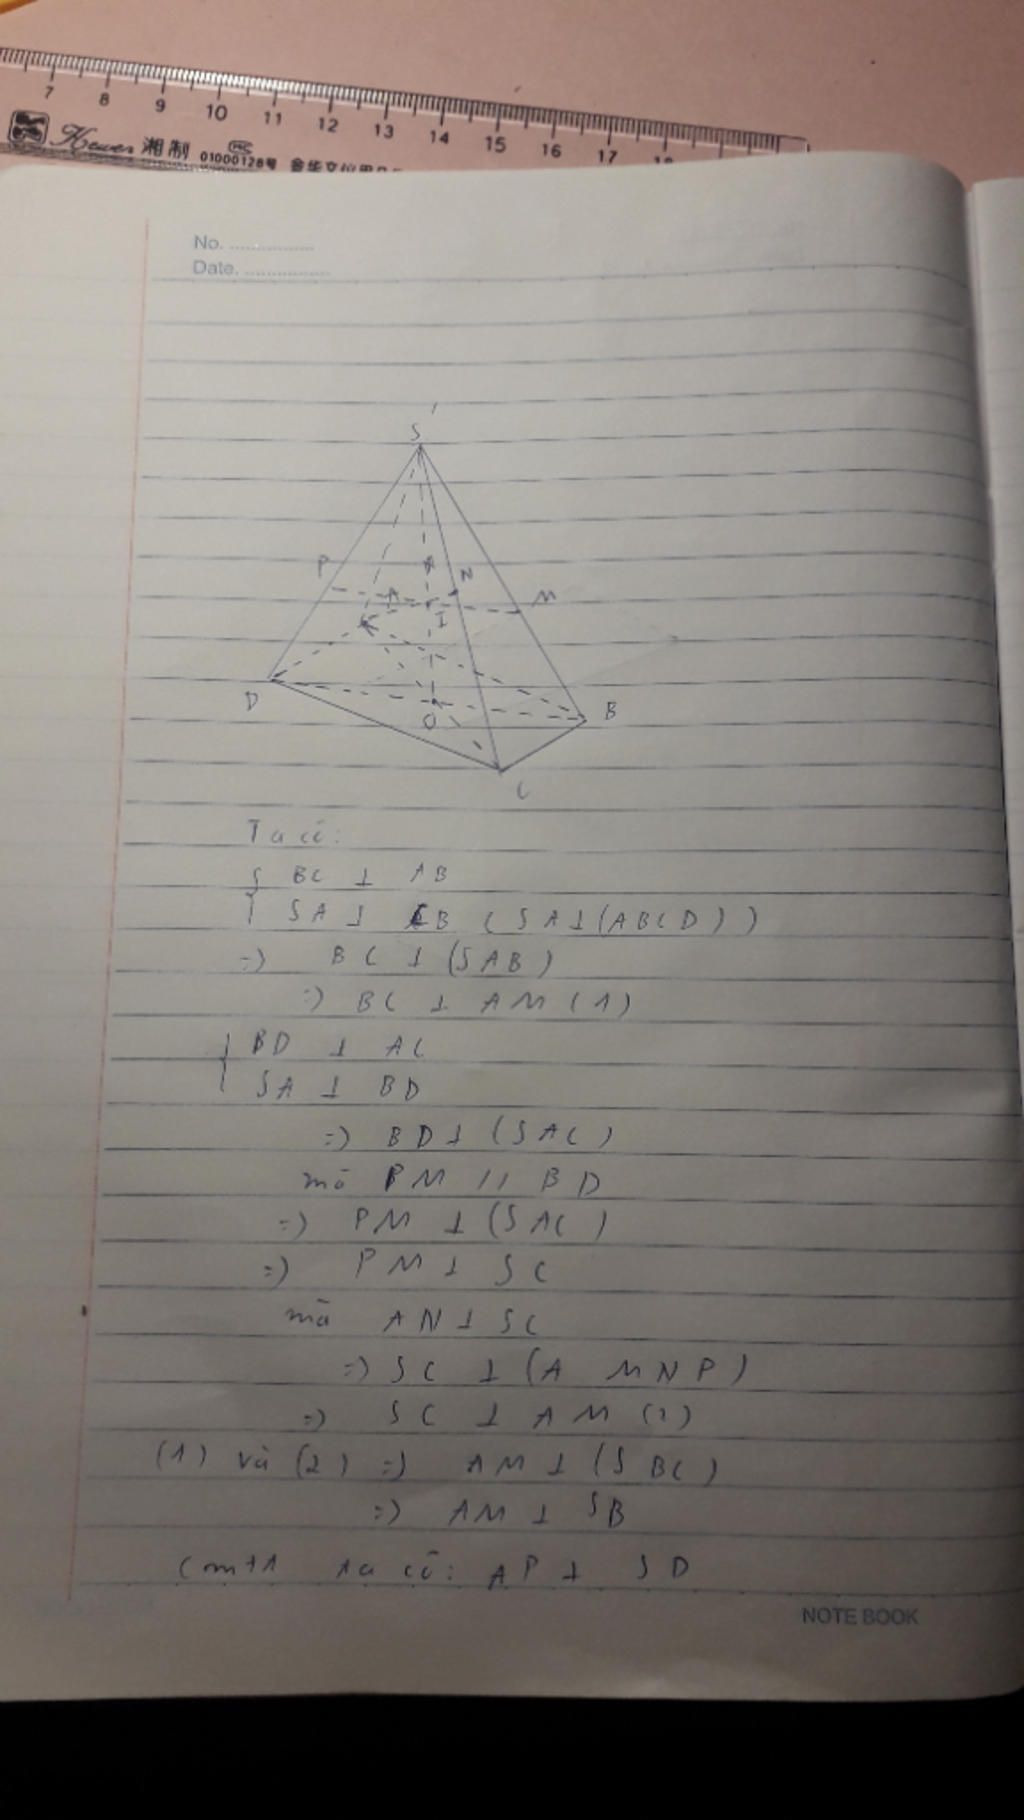 7 8 9 10 11 12 13 14 15 16 17 18
湘制 01000128号
No. ................
Date. ................
S
P
N
A
M
I
D
O
B
C
Ta có:
{ BC ⊥ AB
SA ⊥ CB (SA ⊥ (ABCD))
=) BC ⊥ (SAB)
=) BC ⊥ AM (1)
{ BD ⊥ AC
SA ⊥ BD
=) BD ⊥ (SAC)
mà PM // BD
=) PM ⊥ (SAC)
=) PM ⊥ SC
mà AN ⊥ SC
=) SC ⊥ (AMNP)
=) SC ⊥ AM (2)
(1) và (2) =) AM ⊥ (SBC)
=) AM ⊥ SB
Cmtt ta có: AP ⊥ SD
NOTE BOOK